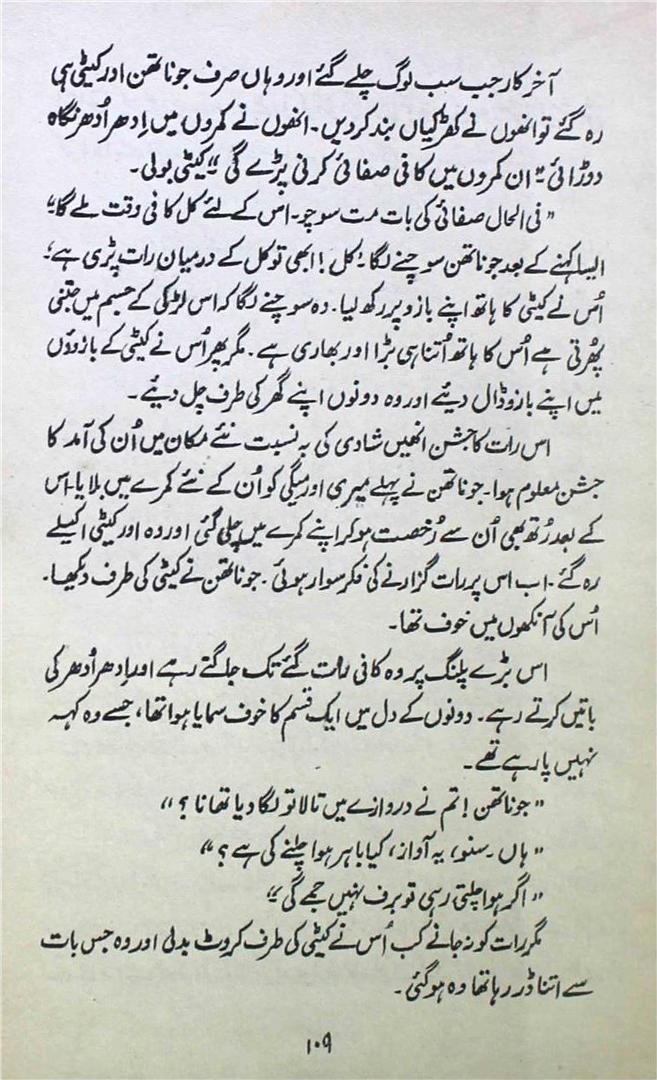 آخر کار جب سب لوگ چلے گئے اور وہاں صرف جوناتھن اور کیٹی ہی
رہ گئے تو انھوں نے کھڑکیاں بند کر دیں۔ انھوں نے کمروں میں اِدھر اُدھر نگاہ
دوڑائی ”ان کمروں میں کافی صفائی کرنی پڑے گی“ کیٹی بولی۔
”فی الحال صفائی کی بات مت سوچو۔ اس کے لئے کل کافی وقت ملے گا“
ایسا کہنے کے بعد جوناتھن سوچنے لگا۔ کل! ابھی تو کل کے درمیان رات پڑی ہے؛
اُس نے کیٹی کا ہاتھ اپنے بازو پر رکھ لیا۔ وہ سوچنے لگا کہ اس لڑکی کے جسم میں جتنی
پھُرتی ہے اُس کا ہاتھ اُتنا ہی بڑا اور بھاری ہے۔ مگر پھر اُس نے کیٹی کے بازوؤں
میں اپنے بازو ڈال دیئے اور وہ دونوں اپنے گھر کی طرف چل دیئے۔
اس رات کا جشن انھیں شادی کی بہ نسبت نئے مکان میں اُن کی آمد کا
جشن معلوم ہوا۔ جوناتھن نے پہلے میری اور میگی کو اُن کے نئے کمرے میں بلایا۔ اس
کے بعد رُتھ بھی اُن سے رُخصت ہو کر اپنے کمرے میں چلی گئی اور وہ اور کیٹی اکیلے
رہ گئے۔ اب اس پر رات گزارنے کی فکر سوار ہوئی۔ جوناتھن نے کیٹی کی طرف دیکھا۔
اُس کی آنکھوں میں خوف تھا۔
اس بڑے پلنگ پر وہ کافی رات گئے تک جاگتے رہے اور اِدھر اُدھر کی
باتیں کرتے رہے۔ دونوں کے دل میں ایک قسم کا خوف سمایا ہوا تھا، جسے وہ کہہ
نہیں پا رہے تھے۔
”جوناتھن! تم نے دروازے میں تالا تو لگا دیا تھا نا؟“
”ہاں۔ سنو، یہ آواز، کیا باہر ہوا چلنے کی ہے؟“
”اگر ہوا چلتی رہی تو برف نہیں جمے گی“
مگر رات کو نہ جانے کب اُس نے کیٹی کی طرف کروٹ بدلی اور وہ جس بات
سے اتنا ڈر رہا تھا وہ ہو گئی۔
۱۰۹